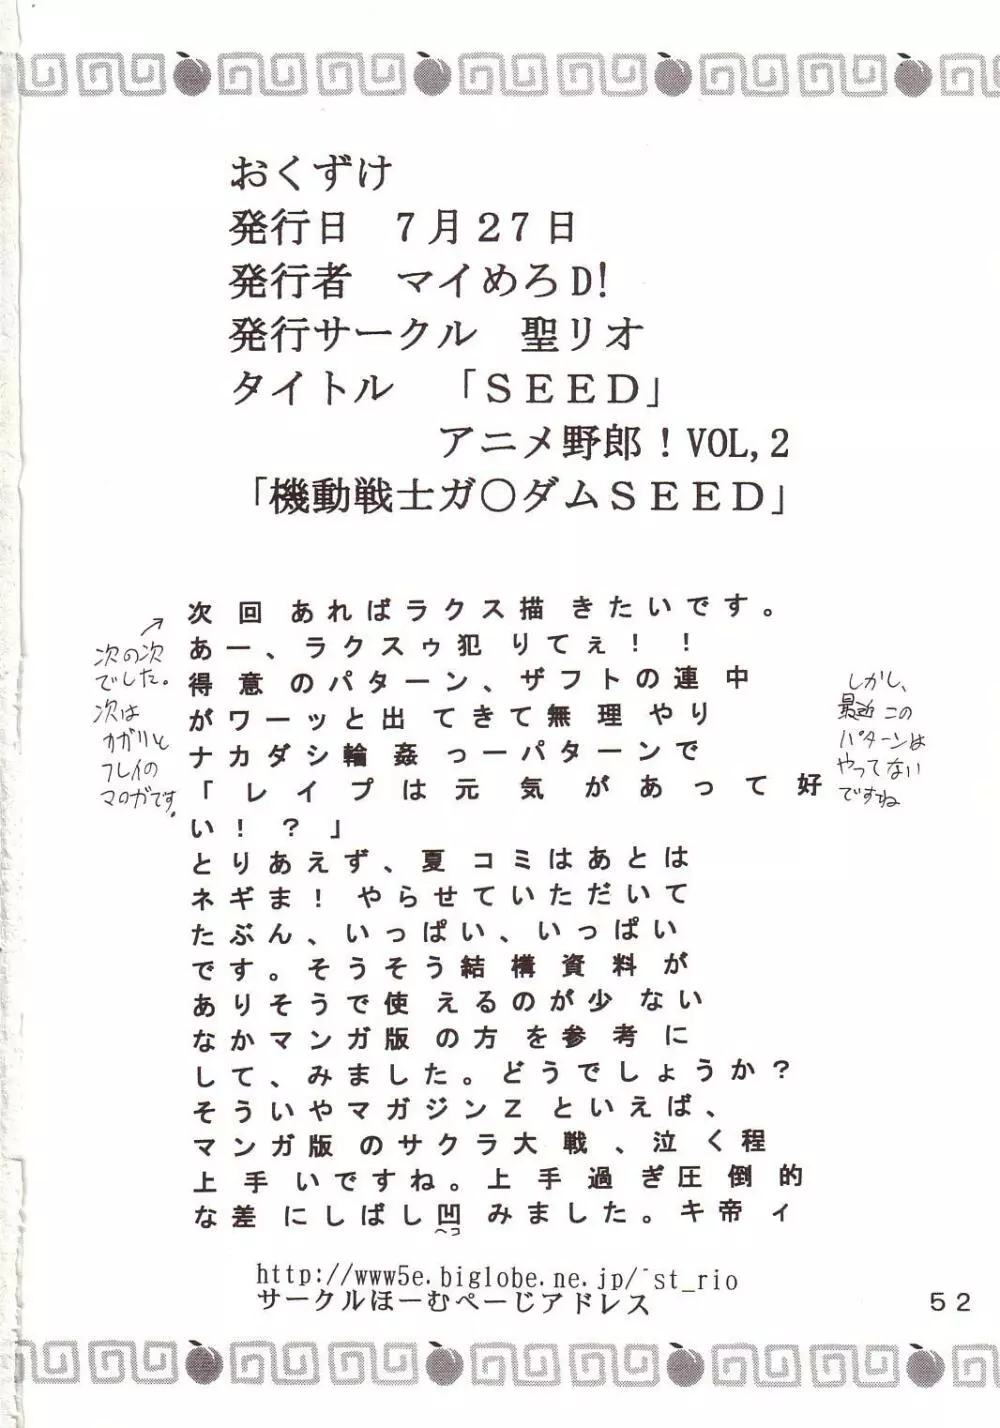 おくずけ
発行日　7月27日
発行者　マイめろD!
発行サークル　聖リオ
タイトル　「SEED」
アニメ野郎！VOL,2
「機動戦士ガ〇ダムSEED」
次回あればラクス描きたいです。
あー、ラクスゥ犯りてぇ！！
得意のパターン、ザフトの連中
がワーッと出てきて無理やり
ナカダシ輪姦っーパターンで
「レイプは元気があって好
い！？」
とりあえず、夏コミはあとは
ネギま！やらせていただいて
たぶん、いっぱい、いっぱい
です。そうそう結構資料が
ありそうで使えるのが少ない
なかマンガ版の方を参考に
して、みました。どうでしょうか？
そういやマガジンZといえば、
マンガ版のサクラ大戦、泣く程
上手いですね。上手過ぎ圧倒的
な差にしばし凹みました。キ帝ィ
へこ
↗
次の次
でした。
次は
カガリと
フレイの
マロガです。
しかし、
最近この
パターンは
やってない
ですね
http://www5e.biglobe.ne.jp/~st_rio
サークルほーむぺーじアドレス
52